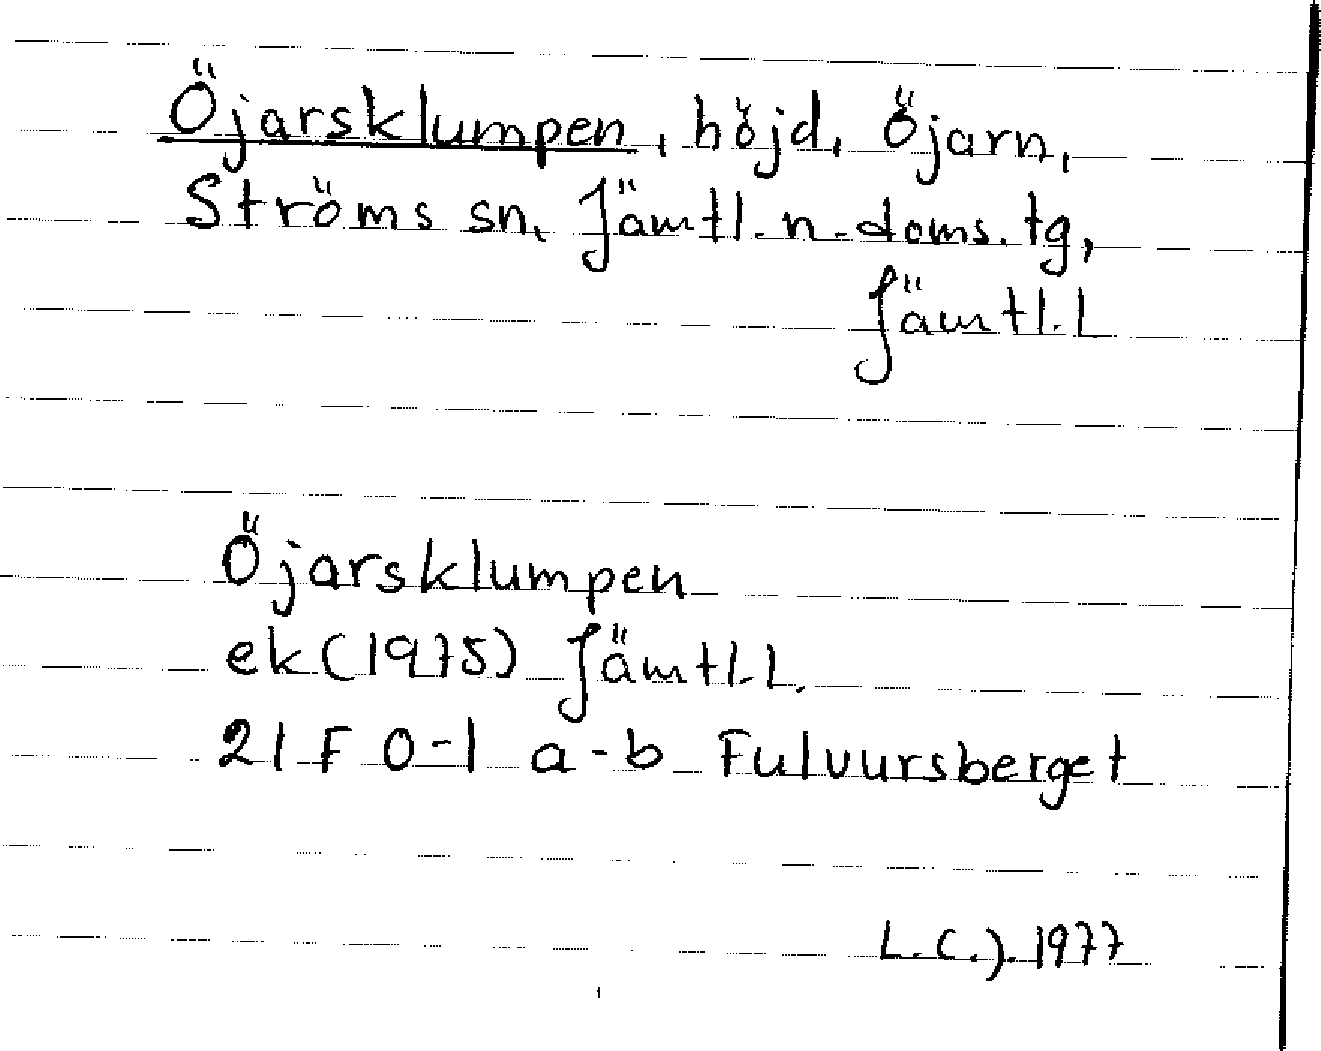 Öjarsklumpen, höjd, Öjarn,
Ströms sn, Jämtl. n. doms. tg,
Jämtl. L
Öjarsklumpen
ek (1975) Jämtl. L.
21 F 0-1 a-b Fulvursberget
L.C.J. 1977